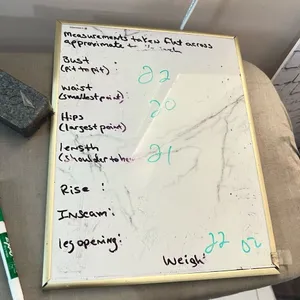 measurements taken flat across
approximate to
Bust :
(Pit to pit) 22
waist
(smallest point) : 20
Hips
(largest point) :
length 21
(shoulder to
Rise :
Inseam :
leg opening :
Weigh: 22 oz